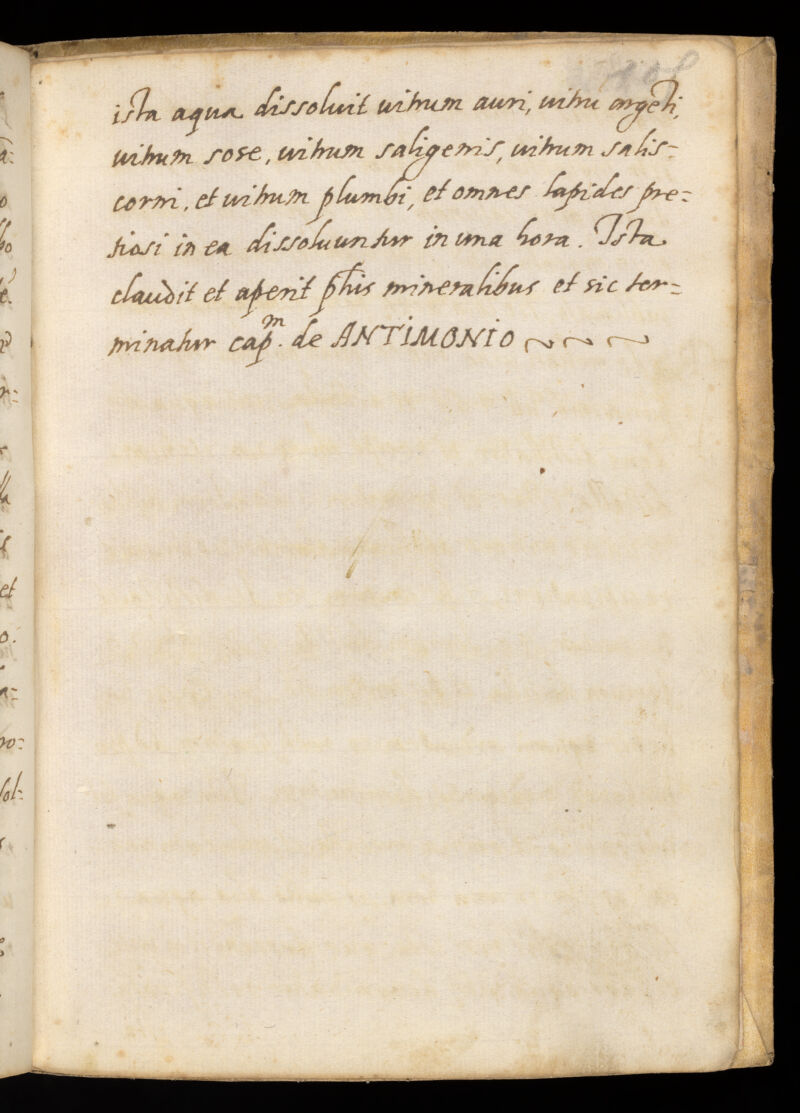 108
ista aqua dissoluit uitrum auri, uitrū argēti,
uitrum sose, uitrum saligemis, uitrum salis=
corni, et uitrum plumbi, et omnes lapides pre=
tiosi in ea dissoluuntur in una hora. Ista
claudit et aperit p̄tis mineralibus et sic ter=
minatur cap.m de ANTIMONIO